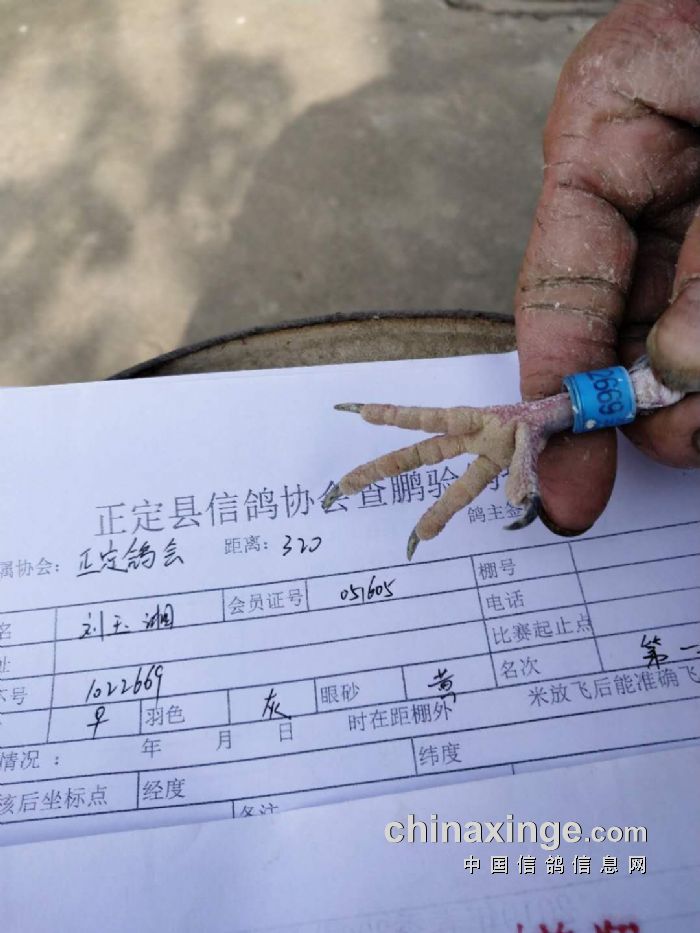 2669
正定县信鸽协会查鹏验
鸽主签
属协会：正定鸽会 距离：320
名 刘玉湘 会员证号 051605 棚号
址 电话
比赛起止点
号 1022669 名次 第一
羽色 灰 眼砂 黄
情况： 年 月 日 时在距棚外 米放飞后能准确飞
该后坐标点 经度 纬度
备注
chinaxinge.com
中国信鸽信息网